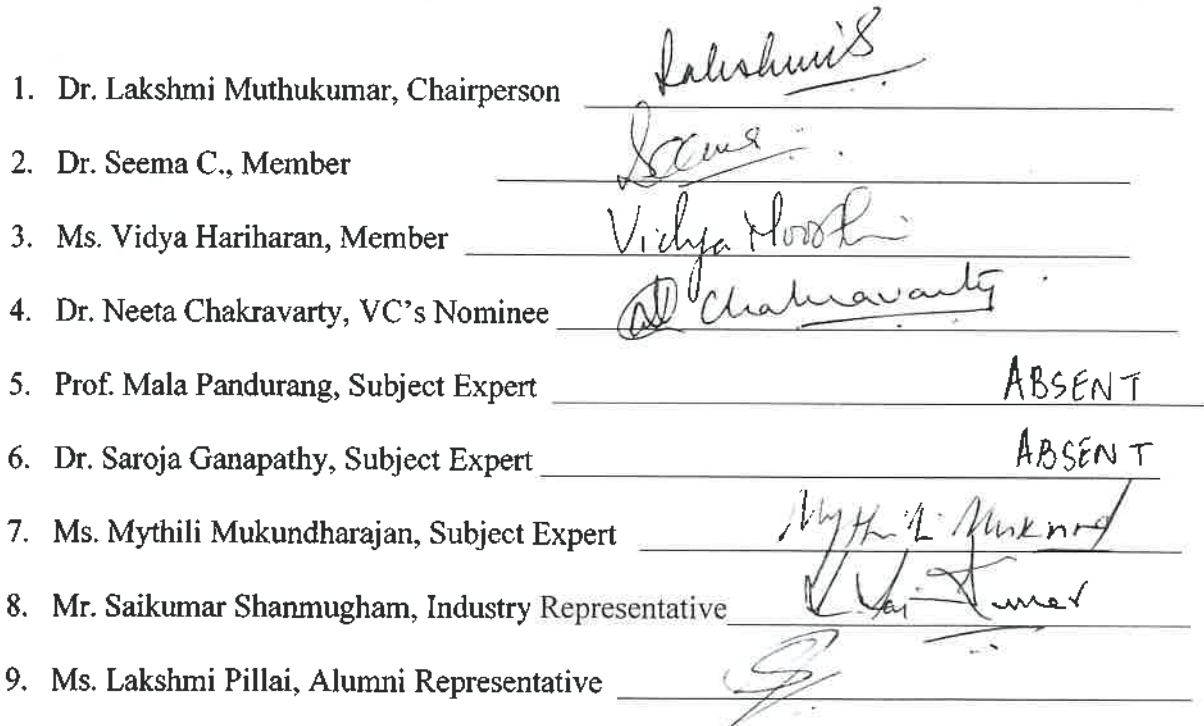 1. Dr. Lakshmi Muthukumar, Chairperson Lakshmi S
2. Dr. Seema C., Member Seema
3. Ms. Vidya Hariharan, Member Vidya
4. Dr. Neeta Chakravarty, VC's Nominee Chakravarty
5. Prof. Mala Pandurang, Subject Expert ABSENT
6. Dr. Saroja Ganapathy, Subject Expert ABSENT
7. Ms. Mythili Mukundharajan, Subject Expert Mythili
8. Mr. Saikumar Shanmugham, Industry Representative
9. Ms. Lakshmi Pillai, Alumni Representative